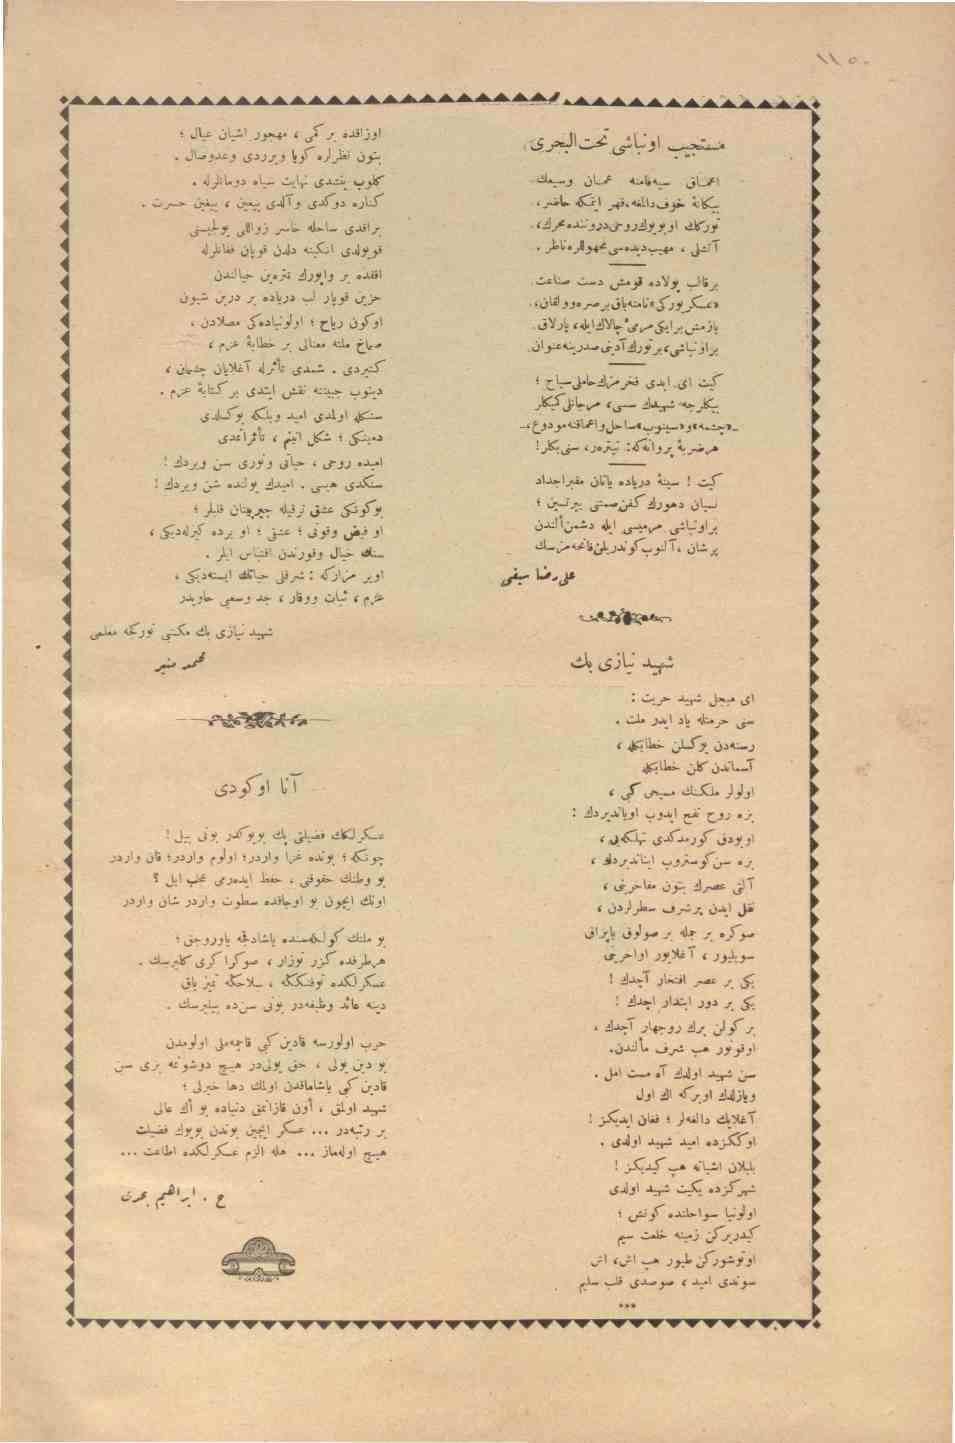 ١١٥٠
مستجيب اونباشی تحت‌البحری
اعماق سیه‌فامنه عمان وسیعك
بیكانهٔ خوف دالغه، قهر ایتمكه حاضر،
تورکك او بویوك روحی درونده محرك،
آتشلی، مهیب دیده‌سی مجهوللره ناظر.
برقالب پولاده قومش دست صناعت
«عسكر تورکی» نامنه یاق برصره وولقان،
یازمش برایکی مرمئ چالاك ایله، یارلاق
براونباشی، برتورك آدینی صدرینه عنوان.
کیت ای ابدی فخرمزك حاملی سیاح؛
بیكلرجه شهیدك سسی، مرجانلی كمیكلر
«چشمه» و «سینوب» ساحل و اعماقنه مودوع،
هرضربهٔ پروانه‌كه: تیتره‌ر، سنی بكلر!
كیت! سینهٔ دریاده یاتان مقبر اجداد
نسیان دهورك كفن صمتنی ییرتسین؛
براونباشی مرمیسی ایله دشمن الندن
پرشان، آلنوب كوندریلن فاتحه‌مزسك
علی رضا سیفی
شهید نیازی بك
ای مبجل شهید حریت:
سنی حرمتله یاد ایدر ملت.
رسنه‌دن یوكسلن خطابكله،
آسماندن كلن خطابكله
اولولر ملكنك مسیحی كبی،
بزه روح نفح ایدوب اویاندیردك:
اویودق كورمدكدی تهلكه‌یی،
بزه سن كوستروب ایناندیردك،
آلتی عصرك بتون مفاخرینی،
نقل ایدن پرشرف سطرلردن،
صوكره بر جمله بر صولوق یاپراق
سویلیور، آغلایور اواخرینی
یكی بر عصر افتخار آچدك!
یكی بر دور ابتدار آچدك!
بر كولن برك روجهار آچدك،
اوقونور هب شرف مآلندن.
سن شهید اولدك آه مست امل.
ویازلدك اوبركه اك اول
آغلایك دالغه‌لر؛ فغان ایدیكز!
اوككزده امید شهید اولدی.
بلبلان آشیانه هپ كیدیكز!
شهركزده یكیت شهید اولدی
اولونیا سواحلنده كونش؛
كیدیركن زمینه خلعت سیم
اوتوشوركن طیور هپ اش، اش
سوندی امید، صوصدی قلب سلیم
***
اوزاقده بر كمی، مهجور آشیان عیال؛
بتون نظرلره كویا ویرردی وعدوصال.
كلوب یتشدی نهایت سیاه دومانلرله.
كناره دوكدی وآلدی ییغین، ییغین حسرت.
براقدی ساحله خاسر زواللی یولجیسنی
قویولدی انكینه دلدن قوپان فغانلرله
افقده بر واپورك تتره‌ین خیالندن
حزین قوپار لب دریاده بر درین شیون
اوكون ریاح؛ اولونیاده‌كی مصلادن،
صماخ ملته معنالی بر خطابهٔ عزم،
كتیردی. شمدی تأثرله آغلایان چشمان،
دینوب جبیننه نقش ایتدی بر كتابهٔ عزم.
سنكله اولمدی امید وبلكه یوكسلدی
ده‌ینكی؛ شكل ایتیم، تأثراتمدی
امیده روحی، حیاتی ونوری سن ویردك!
سنكدی هپسی. امیدك یولنده شن ویردك!
بوكونكی عشق ترقیله چیرپینان قلبلر؛
او فیض وقوتی؛ عشقی؛ او یرده كیزله‌دیكی،
سنك خیال وقورندن اقتباس ایلر.
اویر مزاركه: شرفلی حیاتك ایسته‌دیكی،
عزم، ثبات ووقار، جد وسعیی حاویدر
شهید نیازی بك مكتبی توركجه معلمی
محمد منیر
آنا اوكودی
عسكرلكك فضیلتی پك بویوكدر بونی بیل!
چونكه؛ بونده غزا واردر؛ اولوم واردر؛ قان واردر
بو وطنك حقوقنی، حفظ ایده‌رمی عجب ایل؟
اونك ایچون بو اوجاقده سطوت واردر شان واردر
بو ملتك كولكه‌سنده یاشادقجه یاوروجق؛
هرطرفده كزر توزار، صوكرا كری كلیرسك.
عسكرلكده توفنككله، سلاحكله تمیز یاق
دینه عائد وظیفه‌در بونی سن‌ده بیلیرسك.
حرب اولورسه قادین كبی قاچمه‌ملی اولومدن
بو دین یولی، حق یولی‌در هیچ دوشونمه بزی سن
قادین كبی یاشامقدن اولمك دها خیرلی؛
شهید اولمق، أون قازانمق دنیاده بو أك عالی
بر رتبه‌در ... عسكر ایچین بوندن بویوك فضیلت
هیچ اوله‌ماز ... هله الزم عسكرلكده اطاعت ...
ح. ابراهیم بحری